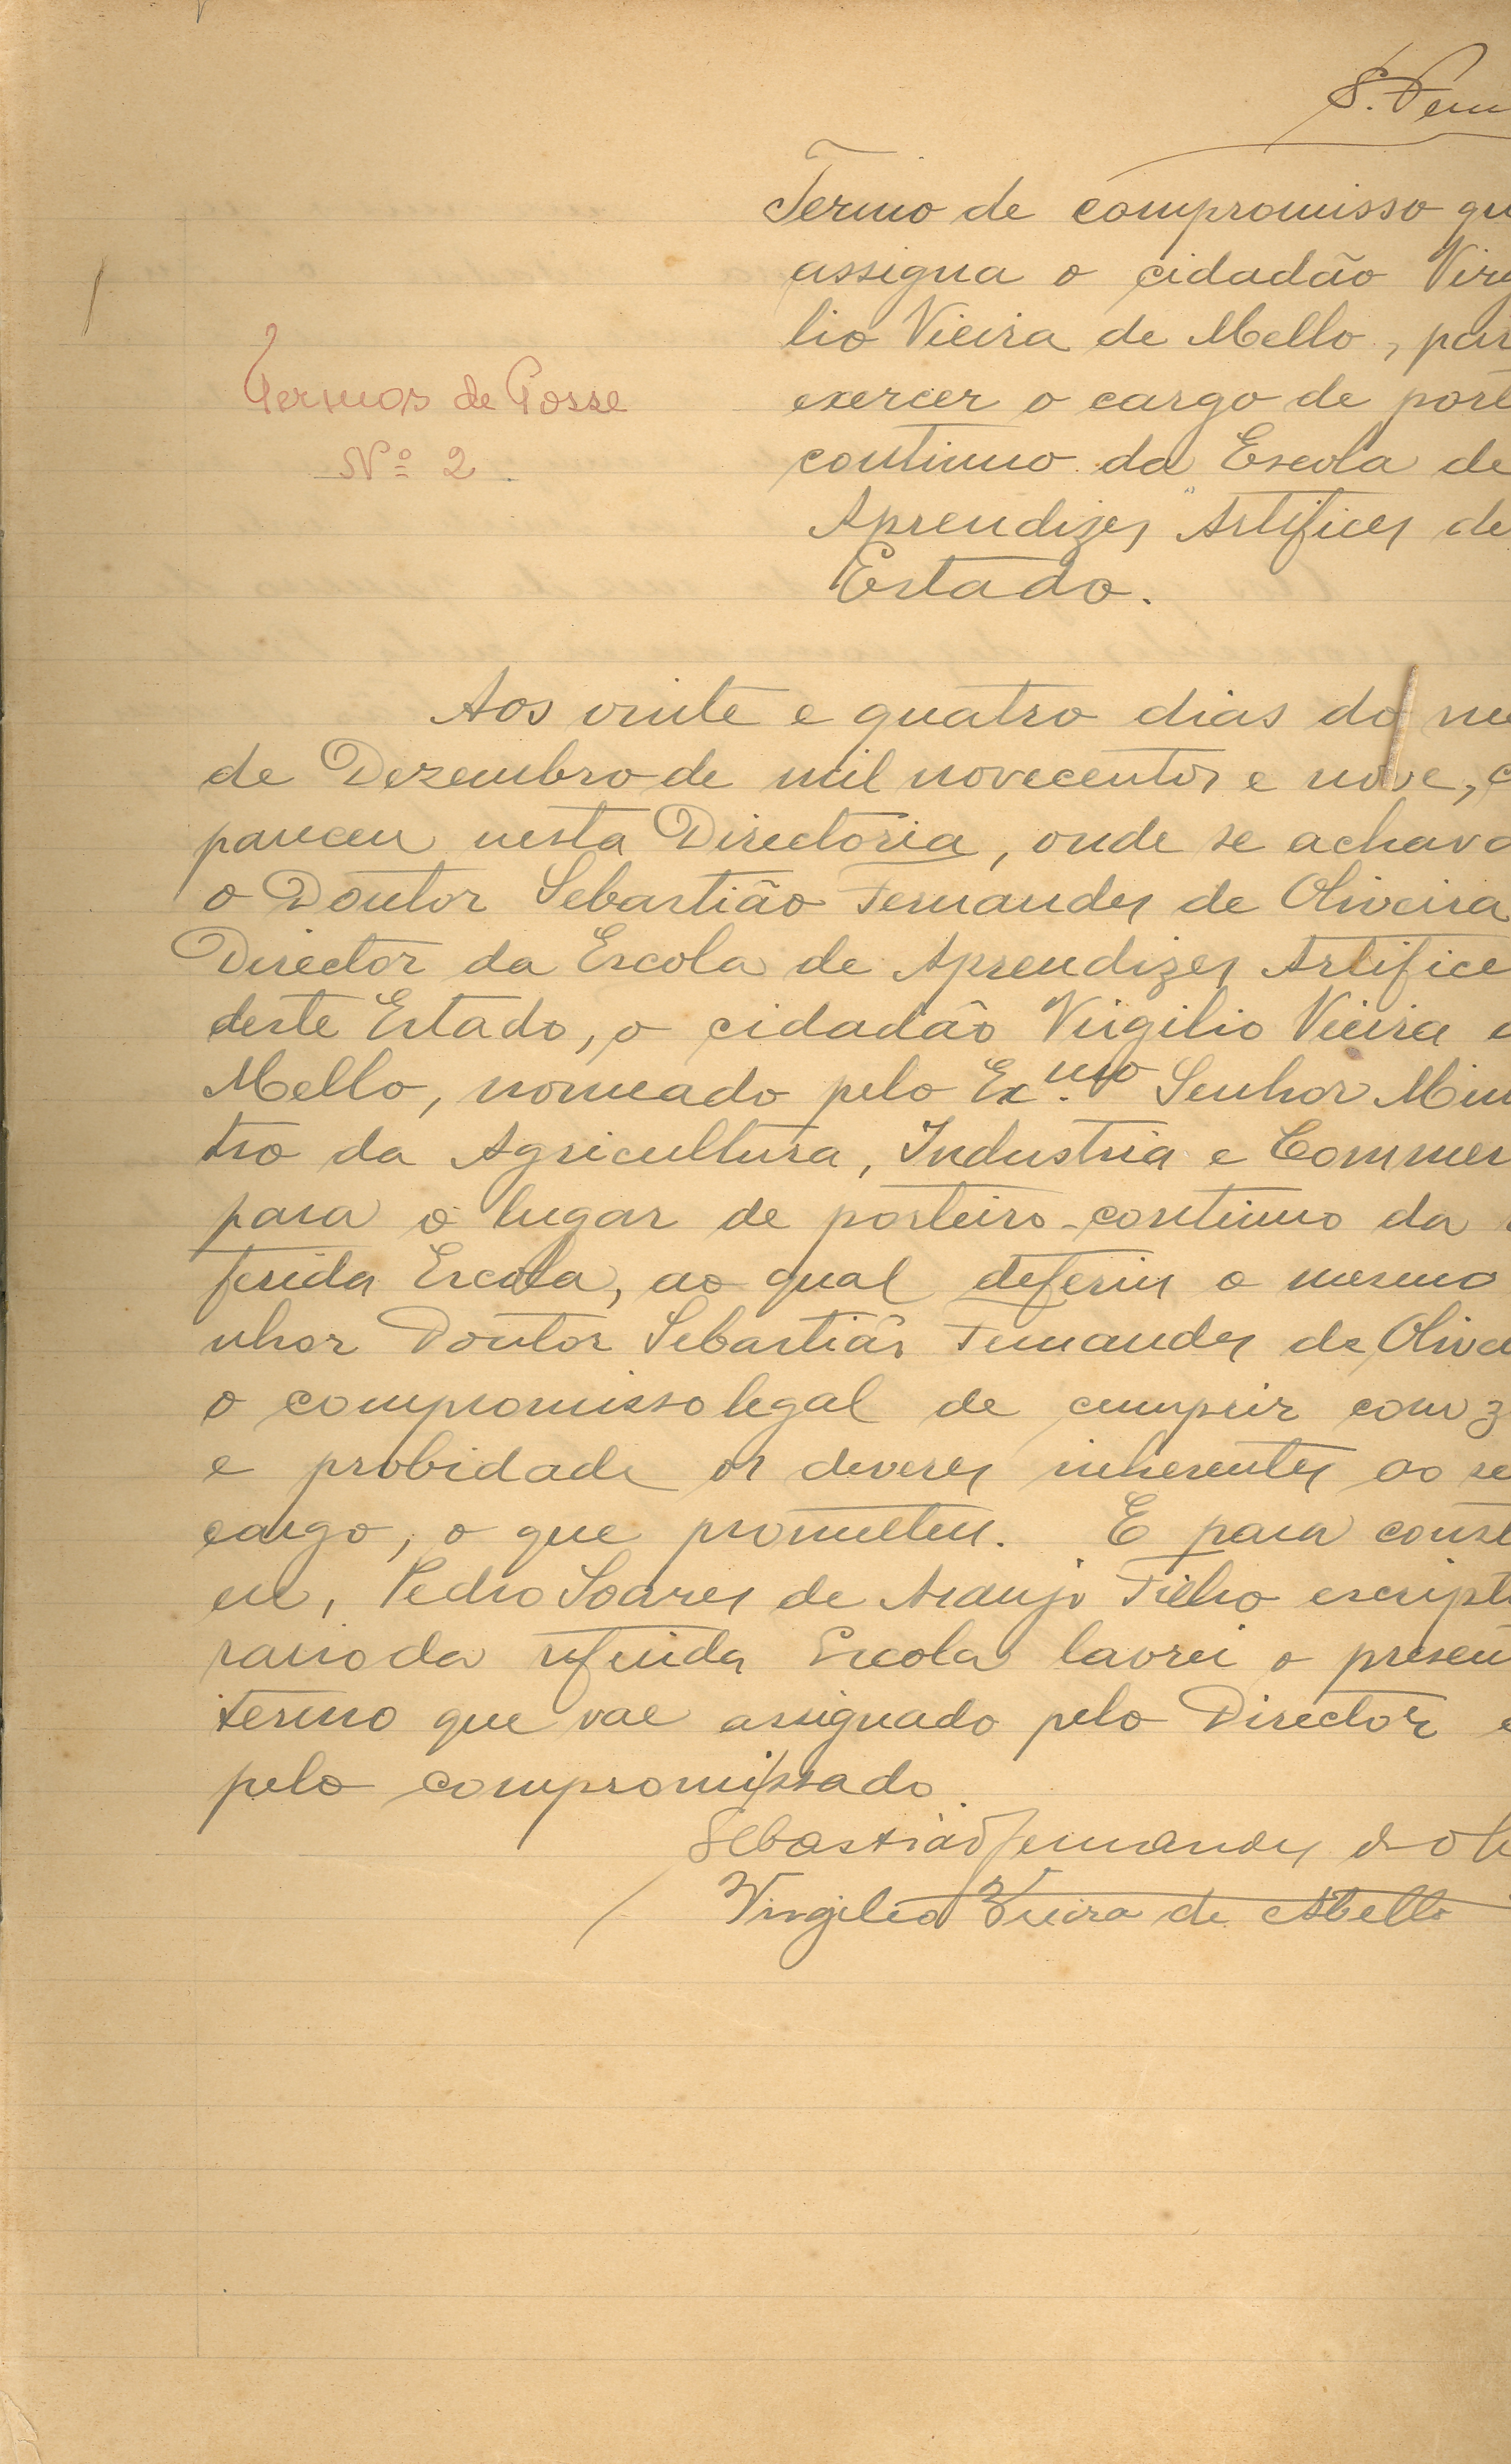 S. Fern
Termo de compromisso qu
assigna o cidadão Virg
lio Vieira de Mello, par
exercer o cargo de port
Termos de Posse
Nº 2
continuo da Escola de
Aprendizes Artifices de
Estado.
Aos vinte e quatro dias do me
de Dezembro de mil novecentos e nove, c
pareceu nesta Directoria, onde se achava
o Doutor Sebastião Fernandes de Oliveira
Director da Escola de Aprendizes Artifice
deste Estado, o cidadão Virgilio Vieira d
Mello, nomeado pelo Ex.mo Senhor Minis
tro da Agricultura, Industria e Commer
para o lugar de porteiro-continuo da
ferida Escola, ao qual deferiu o mesmo
nhor Doutor Sebastião Fernandes de Olivei
o compromisso legal de cumprir com z
e probidade os deveres inherentes ao se
cargo, o que prometteu. E para const
eu, Pedro Soares de Araujo Filho escriptu
rario da referida Escola lavrei o presen
termo que vae assignado pelo Director e
pelo compromissado.
Sebastião Fernandes d Oli
Virgilio Vieira de Mello